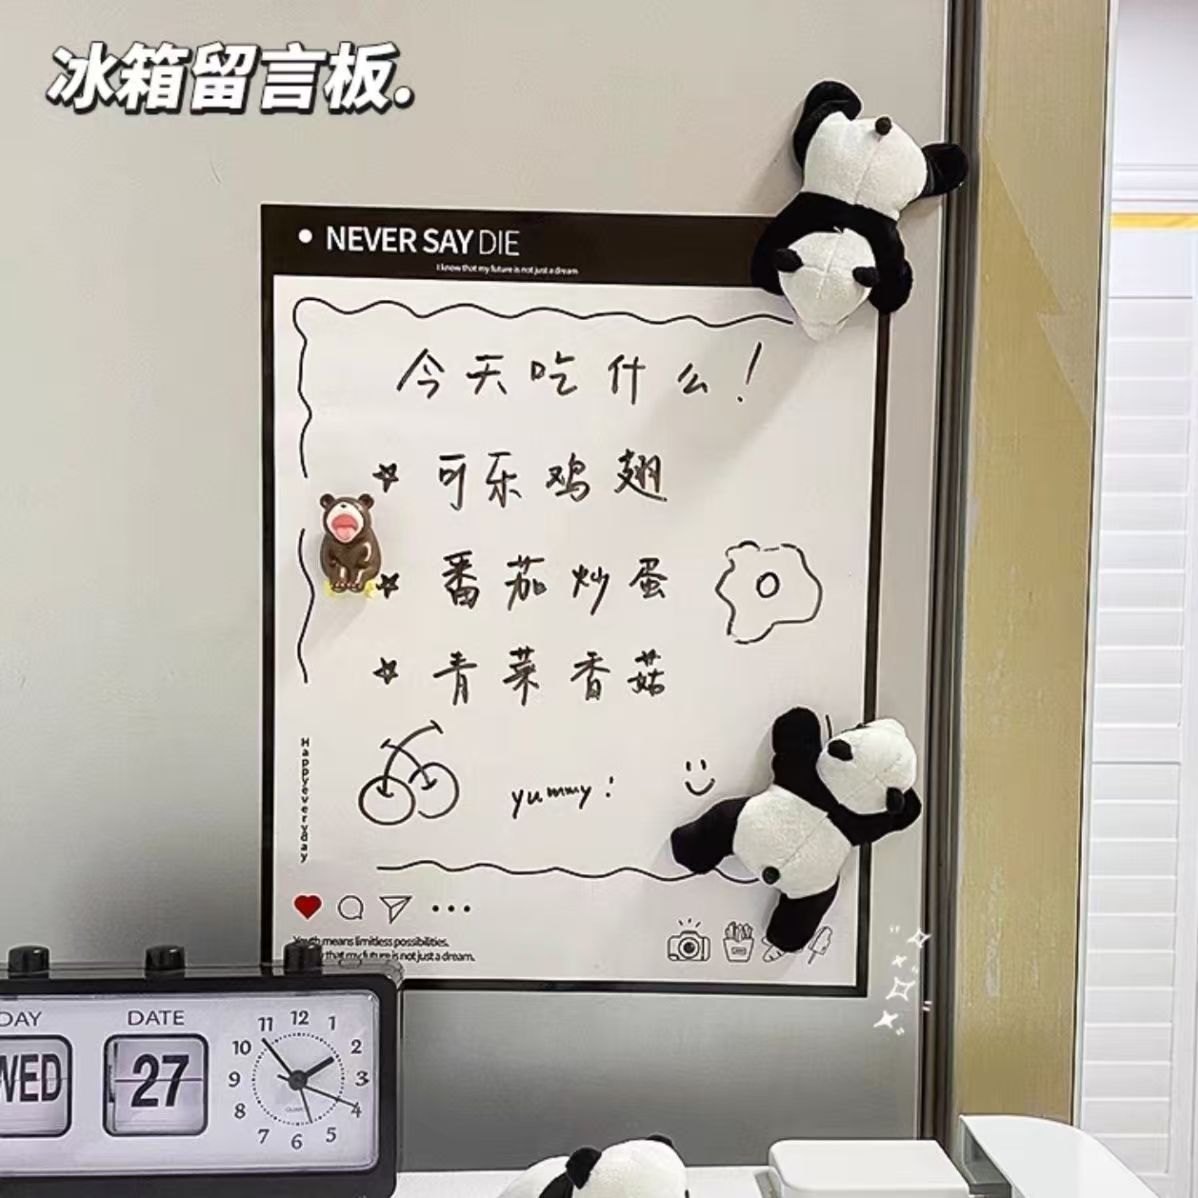 冰箱留言板.
NEVER SAY DIE
I know that my future is not just a dream
今天吃什么！
可乐鸡翅
番茄炒蛋
青菜香菇
yummy!
Happyeveryday
Youth means limitless possibilities.
that my future is not just a dream.
DAY DATE
WED 27
12
11 1
10 2
9 3
8 4
7 5
6